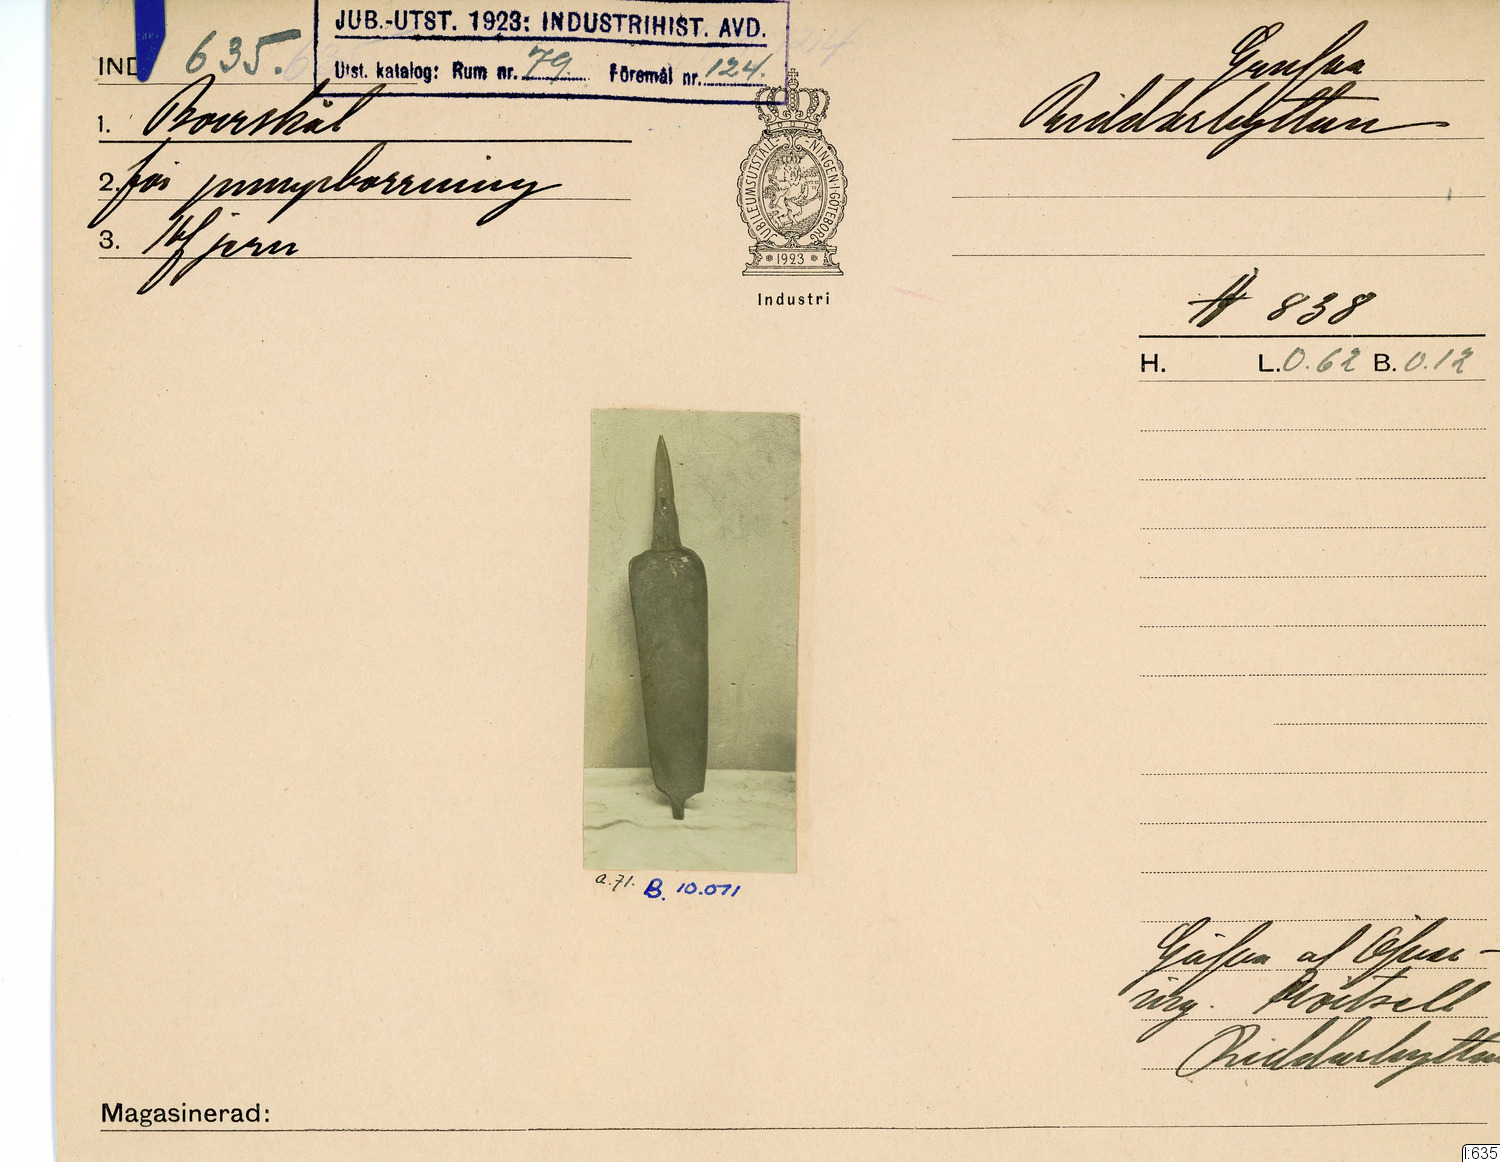 JUB.-UTST. 1923: INDUSTRIHIST. AVD.
Utst. katalog: Rum nr. 79 Föremål nr. 124.
IND 635.
1. Borrskål
2. för pumpborrning
3. Af jern
JUBILEUMSUTSTÄLLNINGEN I GÖTEBORG
1923
Industri
Riddarhyttan
# 838
H. L. 0.62 B. 0.12
a.71. B. 10.071
Gåfva af Öfver-
ing.
Riddarhyttan
Magasinerad:
I:635